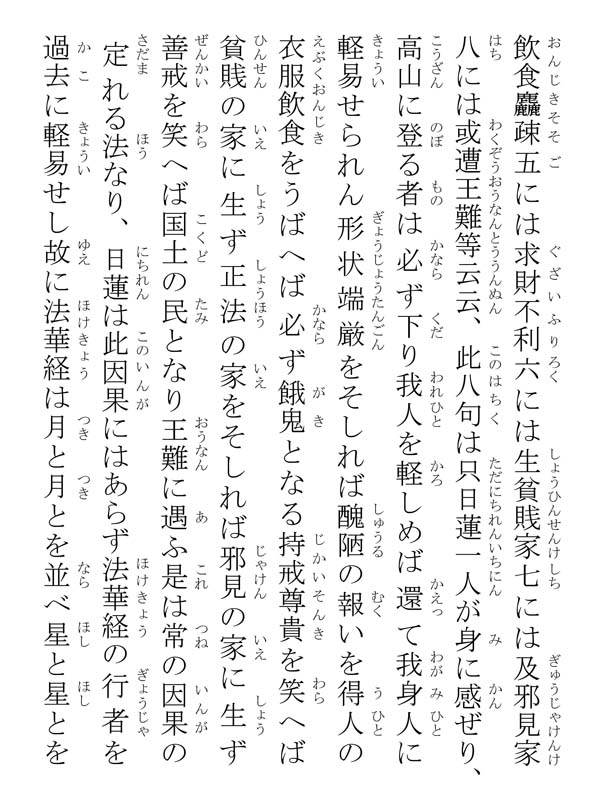 飲食麤疎五には求財不利六には生貧賎家七には及邪見家
八には或遭王難等云云、此八句は只日蓮一人が身に感ぜり、
高山に登る者は必ず下り我人を軽しめば還て我身人に
軽易せられん形状端厳をそしれば醜陋の報いを得人の
衣服飲食をうばへば必ず餓鬼となる持戒尊貴を笑へば
貧賎の家に生ず正法の家をそしれば邪見の家に生ず
善戒を笑へば国土の民となり王難に遇ふ是は常の因果の
定れる法なり、日蓮は此因果にはあらず法華経の行者を
過去に軽易せし故に法華経は月と月とを並べ星と星とを